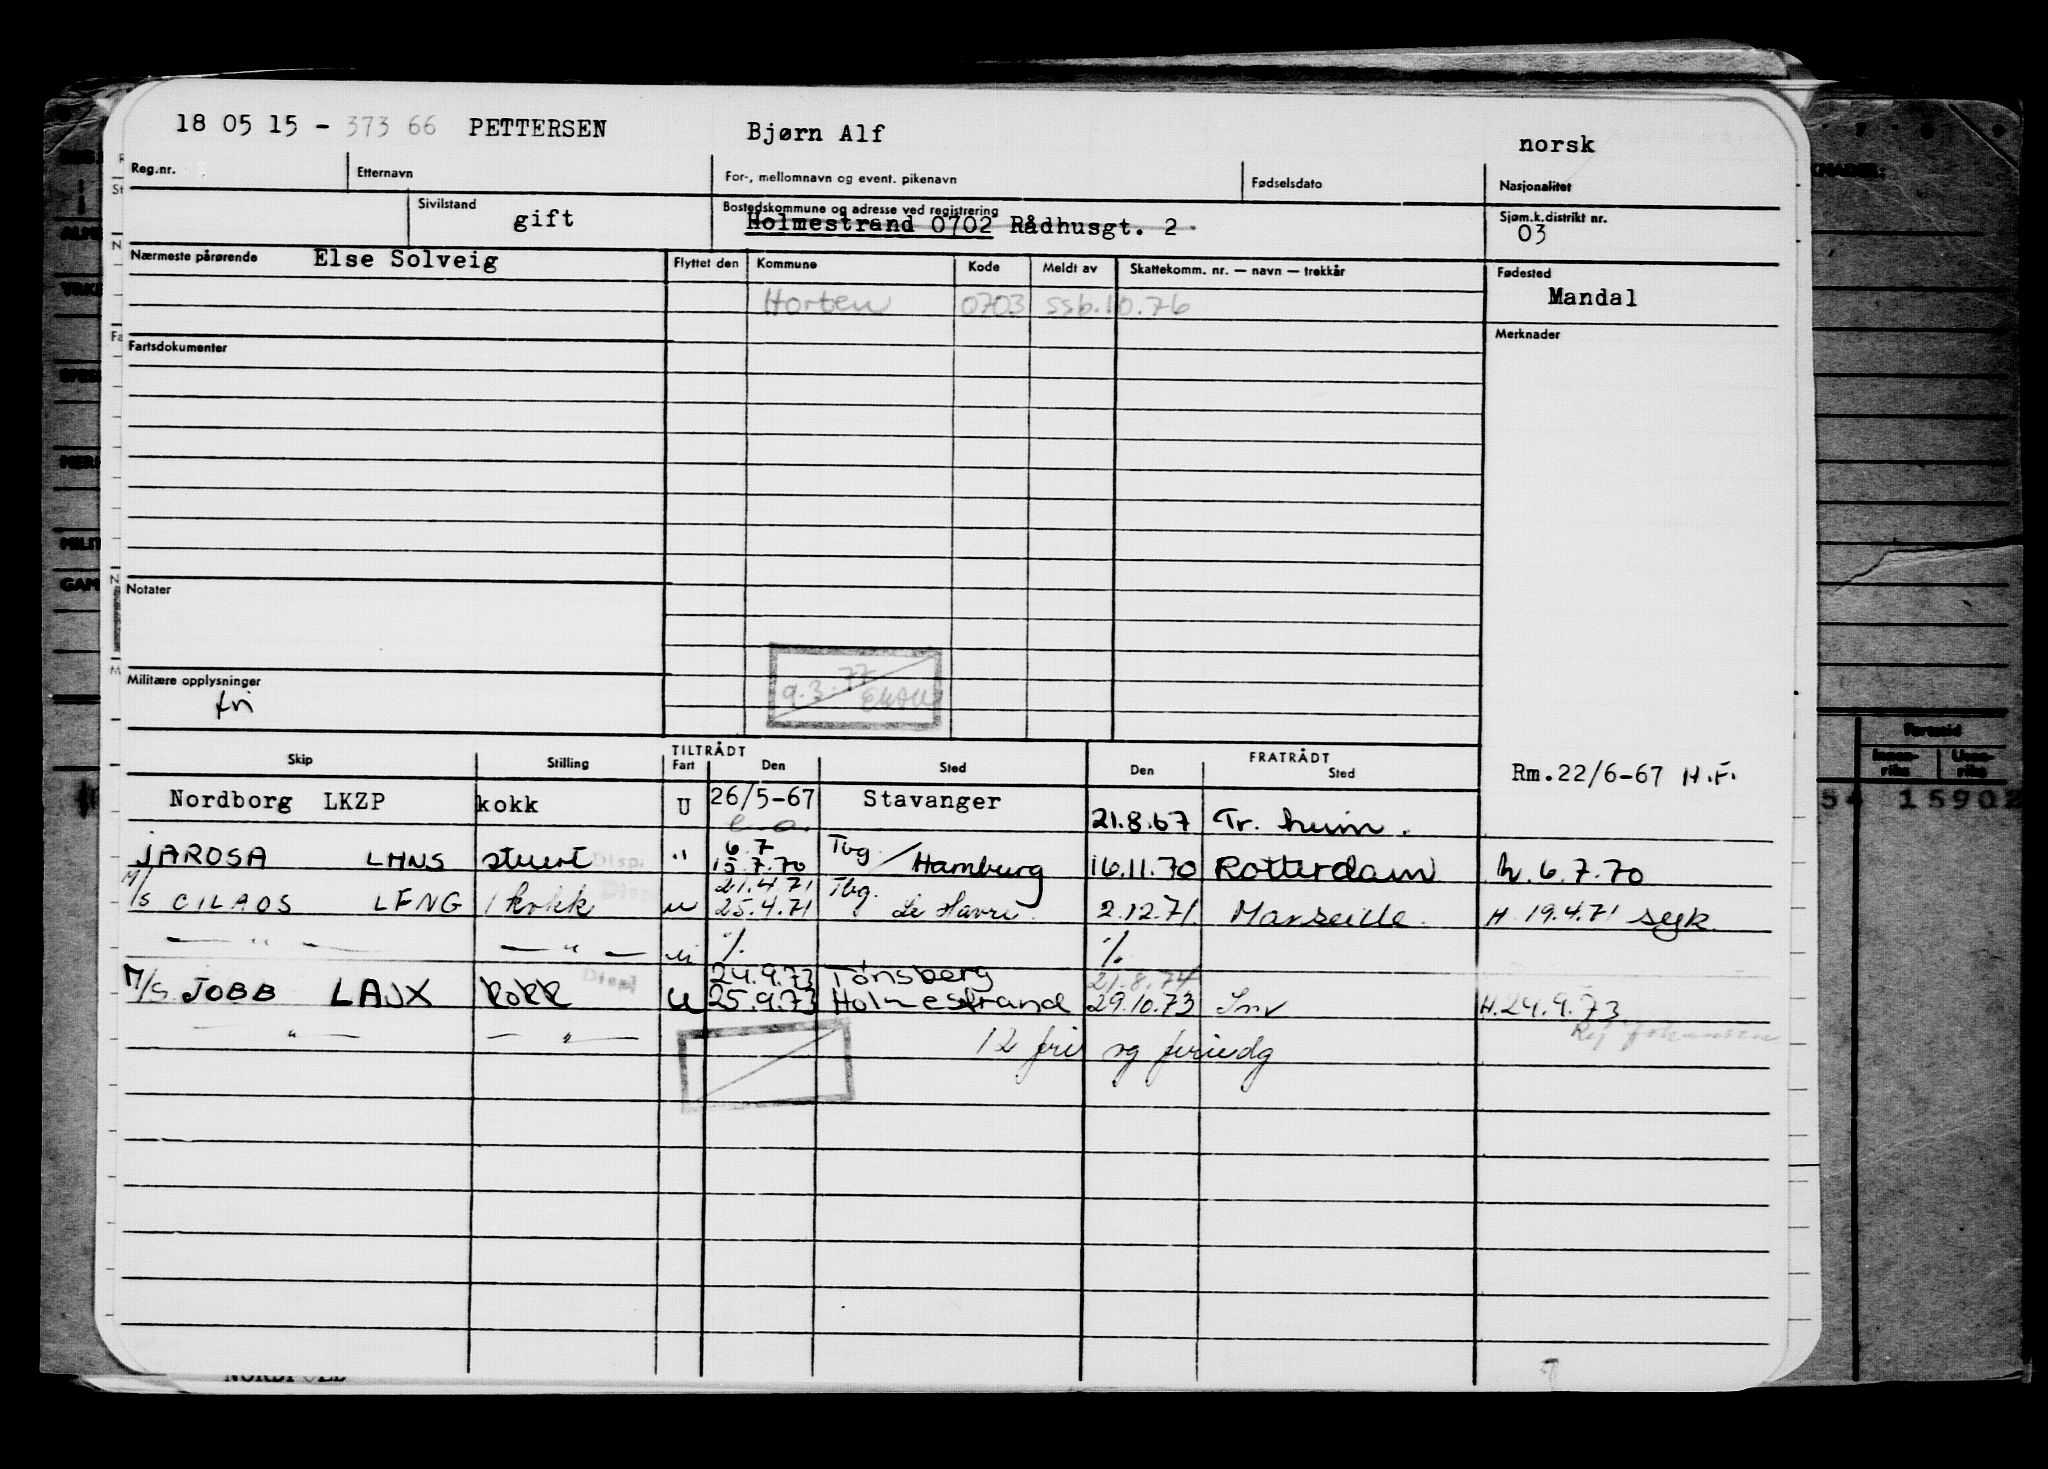 18 05 15 - 373 66 PETTERSEN Bjørn Alf norsk
Reg.nr. Etternavn For-, mellomnavn og event. pikenavn Fødselsdato Nasjonalitet
Sivilstand gift Bostedskommune og adresse ved registrering Sjøm.k.distrikt nr.
Holmestrand 0702 Rådhusgt. 2 03
Nærmeste pårørende Else Solveig Flyttet den Kommune Kode Meldt av Skattekomm. nr. — navn — trekkår Fødested
Horten 0703 ssb.10.76 Mandal
Merknader
Fartsdokumenter
Notater
Militære opplysninger
fri
9.3.77
Skip Stilling TILTRÅDT Fart Den Sted FRATRÅDT Den Sted
Rm.22/6-67 H.F.
Nordborg LKZP kokk U 26/5-67 Stavanger 21.8.67 Tr. heim.
6.7 Tbg
JAROSA LHNS stuert Disp. " 15.7.70 / Hamburg 16.11.70 Rotterdam h. 6.7.70
21.4.71 Tbg.
M/S CILAOS LFNG kokk Disp u 25.4.71 Le Havre. 2.12.71. Marseille. H. 19.4.71 syk.
— " — — " — u %. %.
24.9.73 Tønsberg 21.8.74
M/S JOBB LAJX kokk Disp u 25.9.73 Holmestrand 29.10.73 Inv H.24.9.73
— " — — " — Ref Johansen
12 fri og feriedg
54 15902